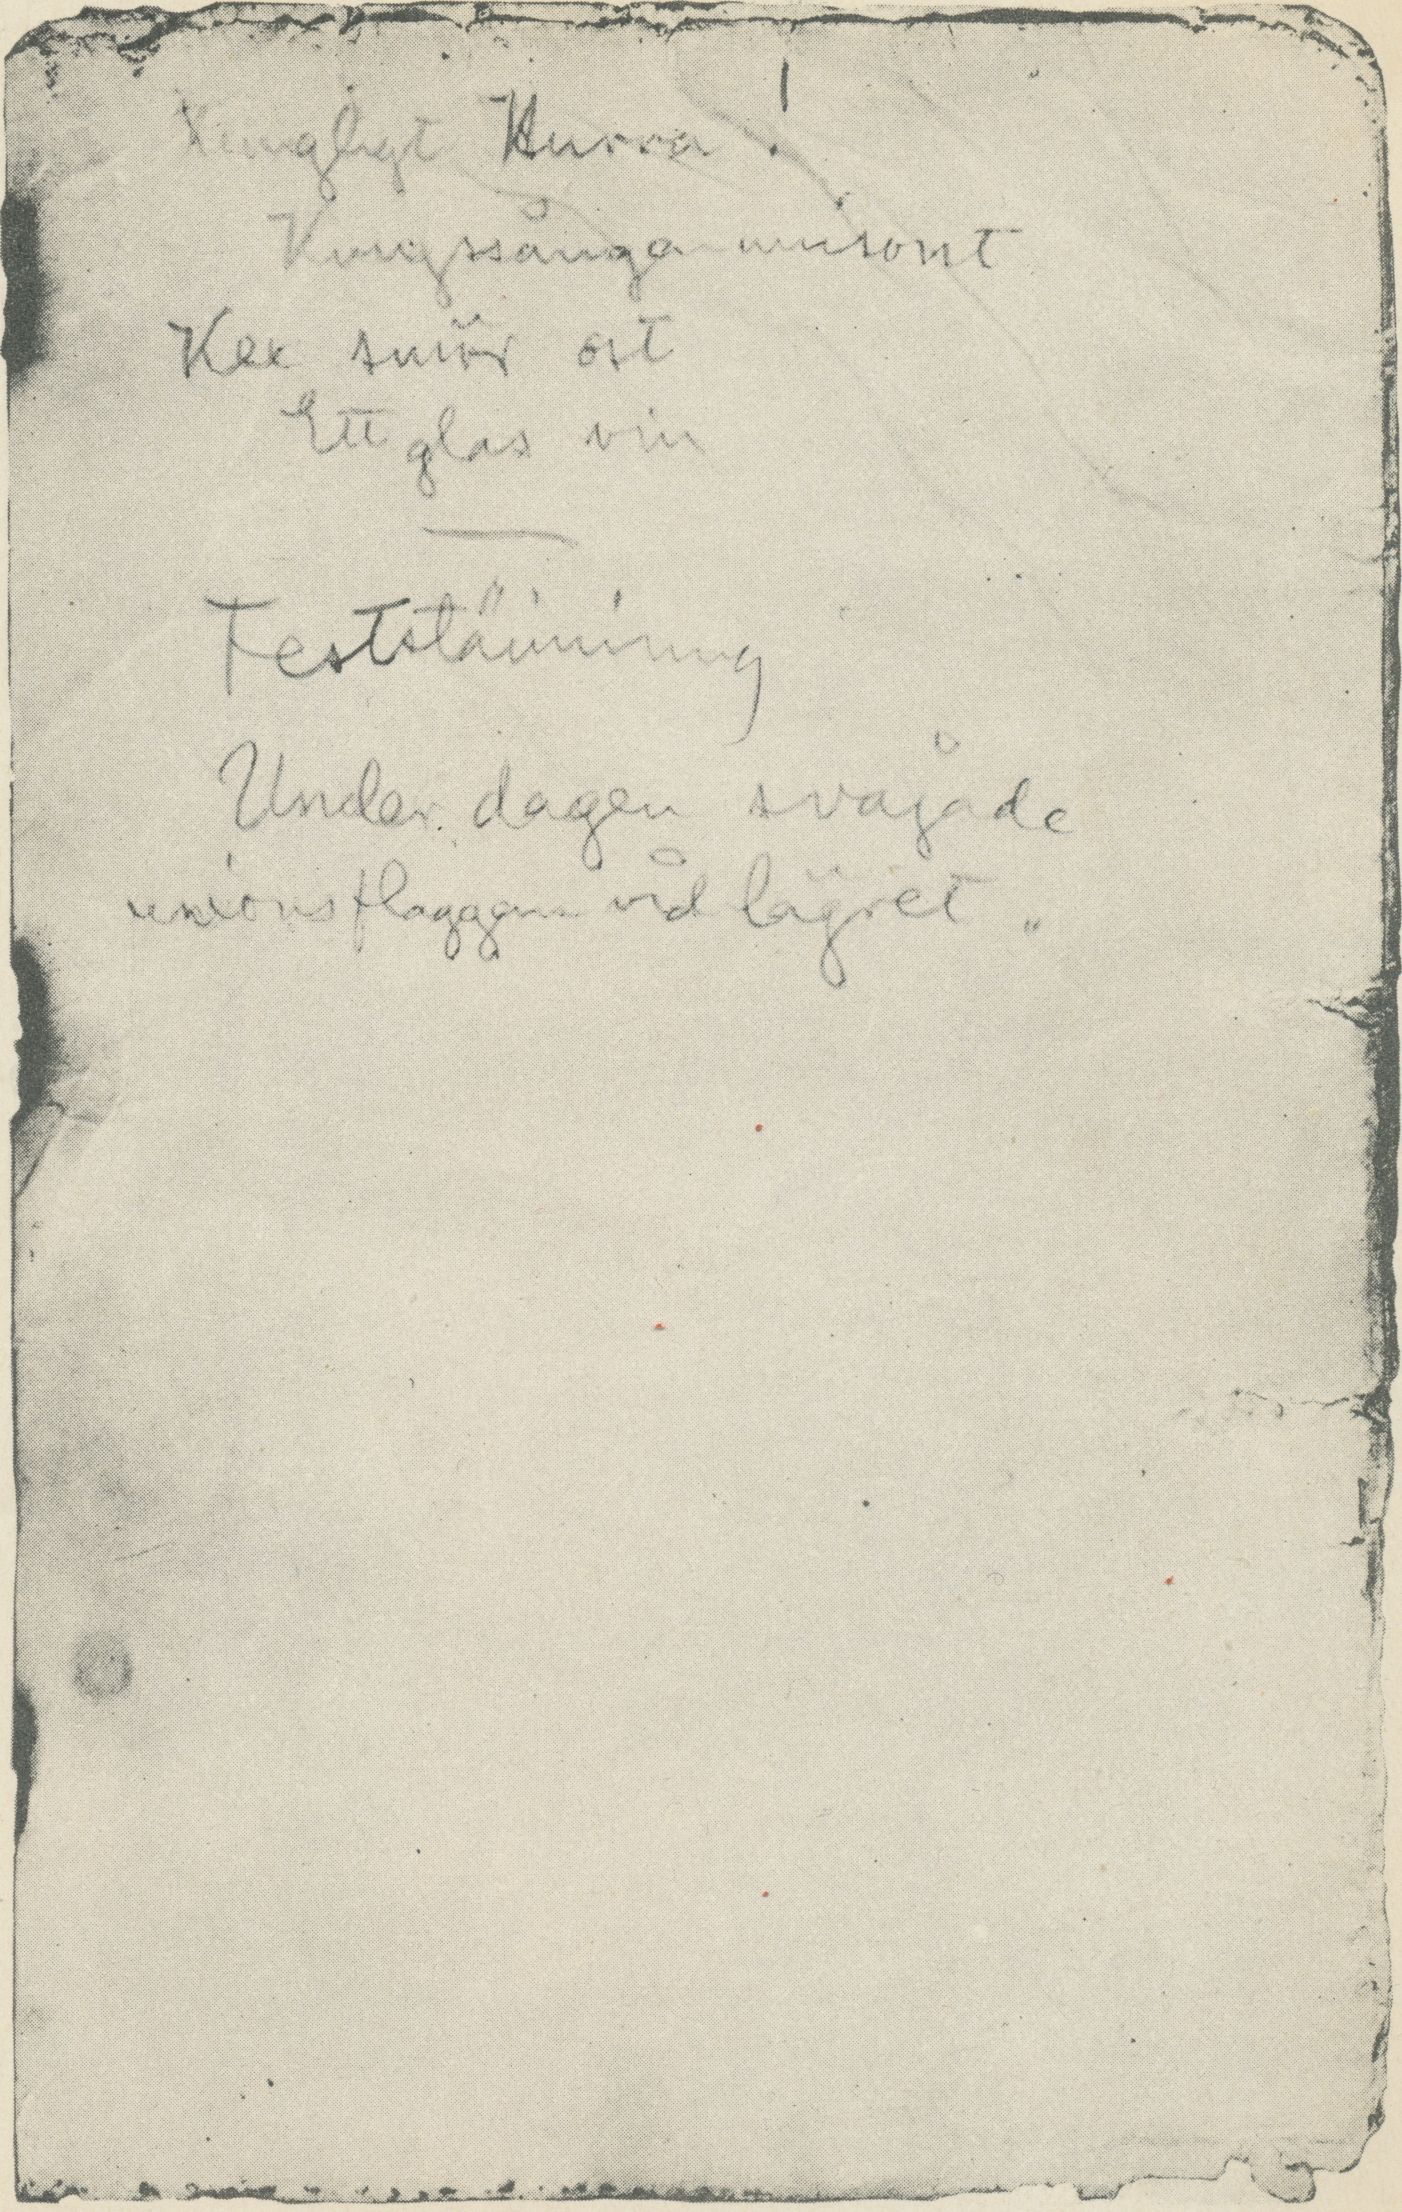 Kungligt Hurra!
Kungssången unisont
Kex smör ost
Ett glas vin
Feststämning
Under dagen svajade
unionsflaggan vid lägret